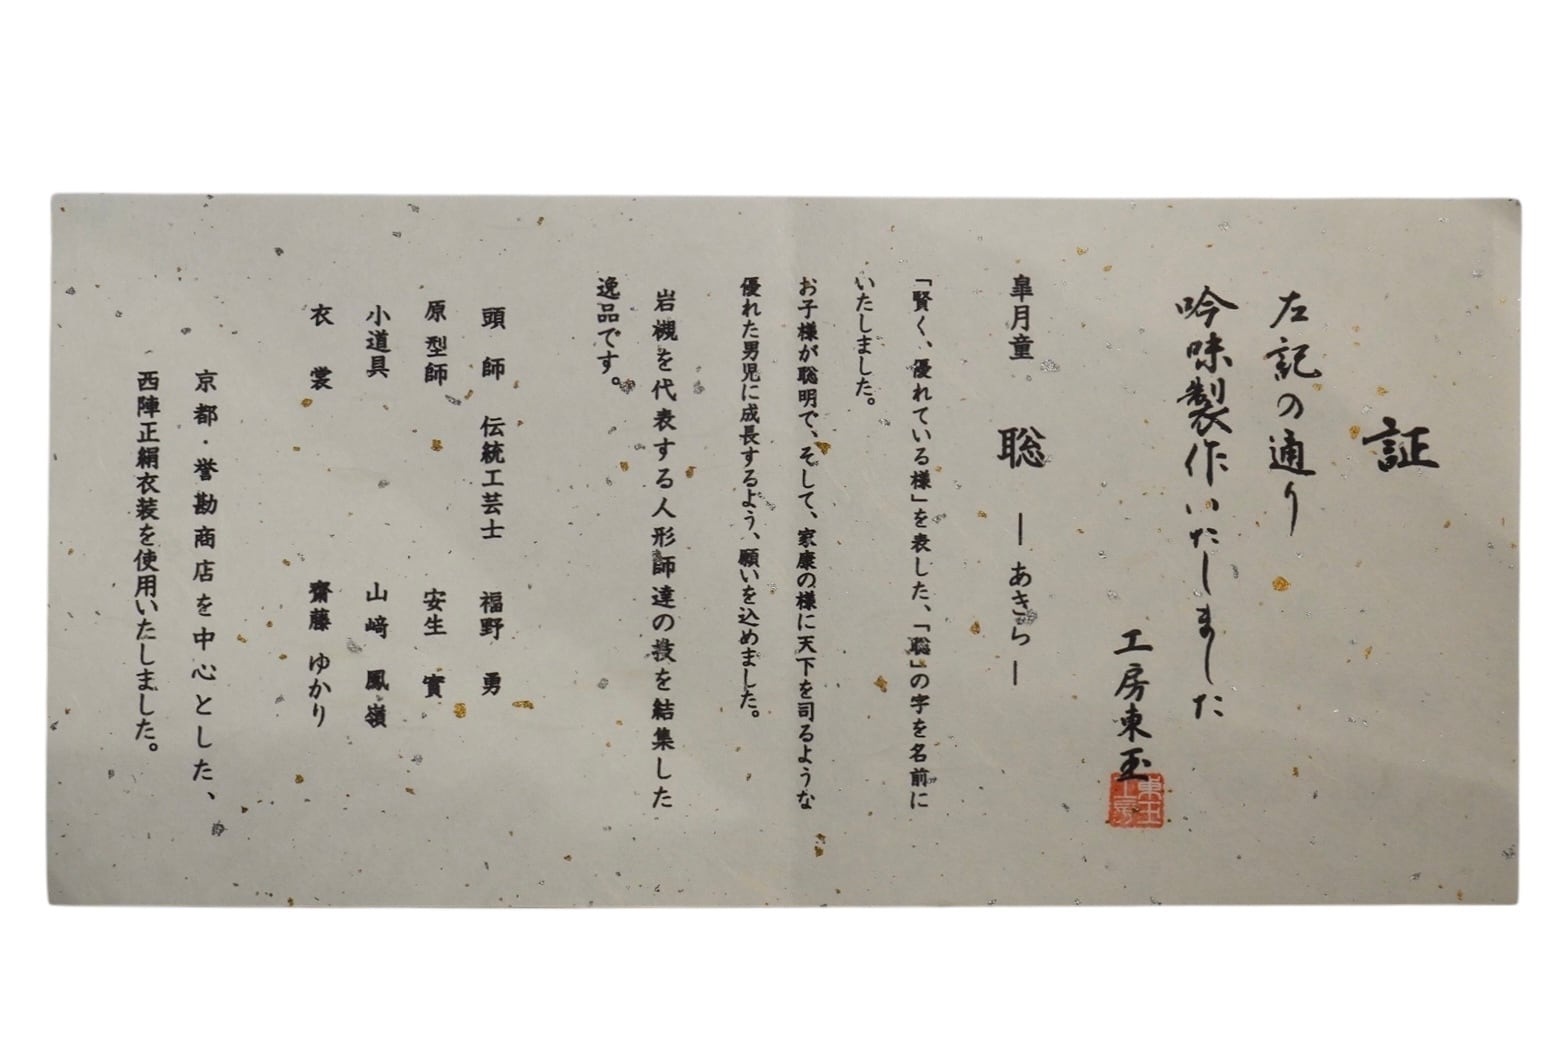 証
左記の通り
吟味製作いたしました
工房東玉
東玉工房
皐月童 聡 ―あきら―
「賢く、優れている様」を表した、「聡」の字を名前に
いたしました。
お子様が聡明で、そして、家康の様に天下を司るような
優れた男児に成長するよう、願いを込めました。
岩槻を代表する人形師達の技を結集した
逸品です。
頭師 伝統工芸士 福野 勇
原型師 安生 實
小道具 山﨑 鳳嶺
衣裳 齋藤 ゆかり
京都・誉勘商店を中心とした、
西陣正絹衣装を使用いたしました。